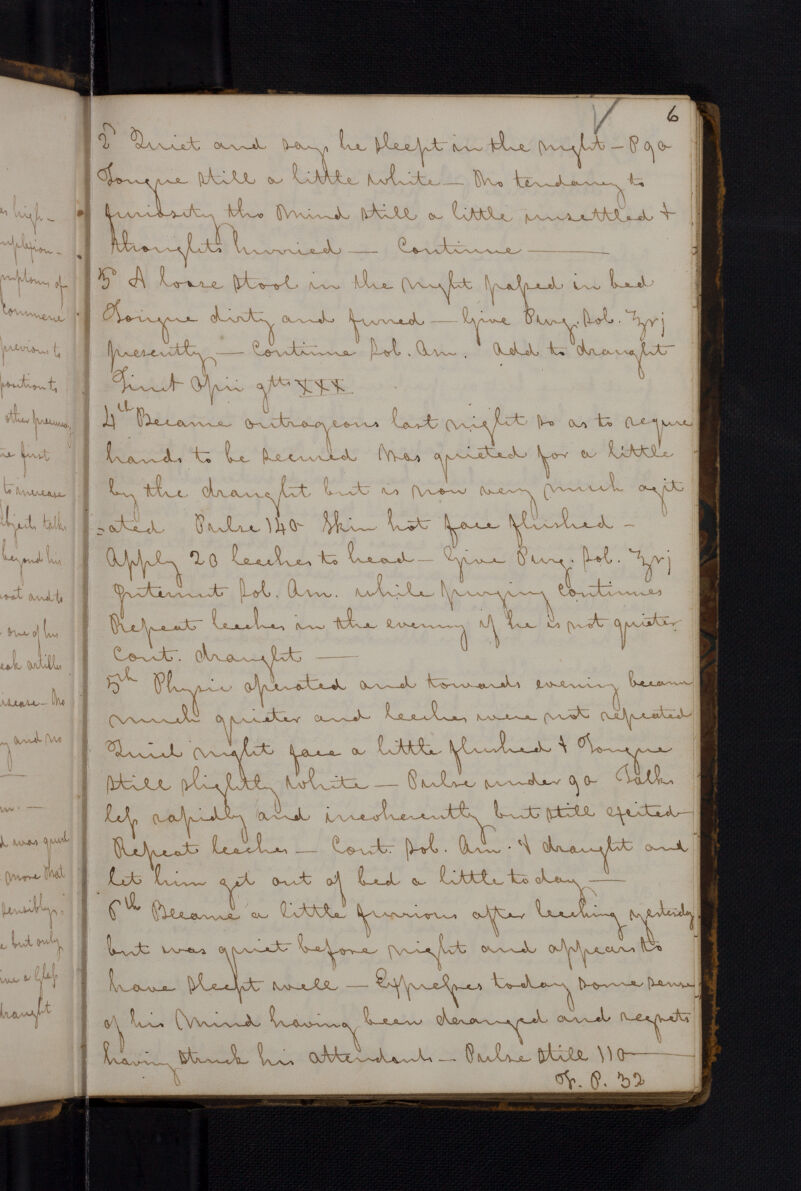 6
2d Quiet and says he sleept in the night – P 90
Tongue still a little white – No tendancy to
furiosity tho Mind still a little unsettled &
thoughts hurried — Continue —
3d A loose stool in the night passed in bed
Tongue dirty and furred – Give Purg. Sol. ʒvj
presently – Continue Sol. Am. Add to draught
Tinct Opii gtts XXX
4th Became outrageous last night so as to require
hands to be secured Was quieted for a little
by the draught but is now very much agit
=ated Pulse 140 Skin hot face flushed –
Apply 20 leeches to head – Give Purg. Sol. ʒvj
Intermit Sol. Am. while purging continues
Repeat leeches in the evening if he is not quieter
Cont. draught —
5th Physic operated and towards evening became
much quieter and leeches were not repeated
Quiet night face a little flushed & Tongue
still slightly white – Pulse under 90 Talks
less rapidly and incoherently but still excited
Repeat leeches – Cont. Sol. Am. & draught and
let him get out of bed a little to day —
6th Became a little furrious after leeching yesterday
but was quiet before night and appears to
have sleept well – Expresses today some sense
of his Mind having been deranged and regrets
having struck his attendants – Pulse still 110 —
T. P. 32
as high –
symptoms of
commence
previous to
position to
other
first
to increase
objects talks
beyond his
and to
one of his
disease – No
and no
was quiet
more that
sensibly
but only
a Glass
draught